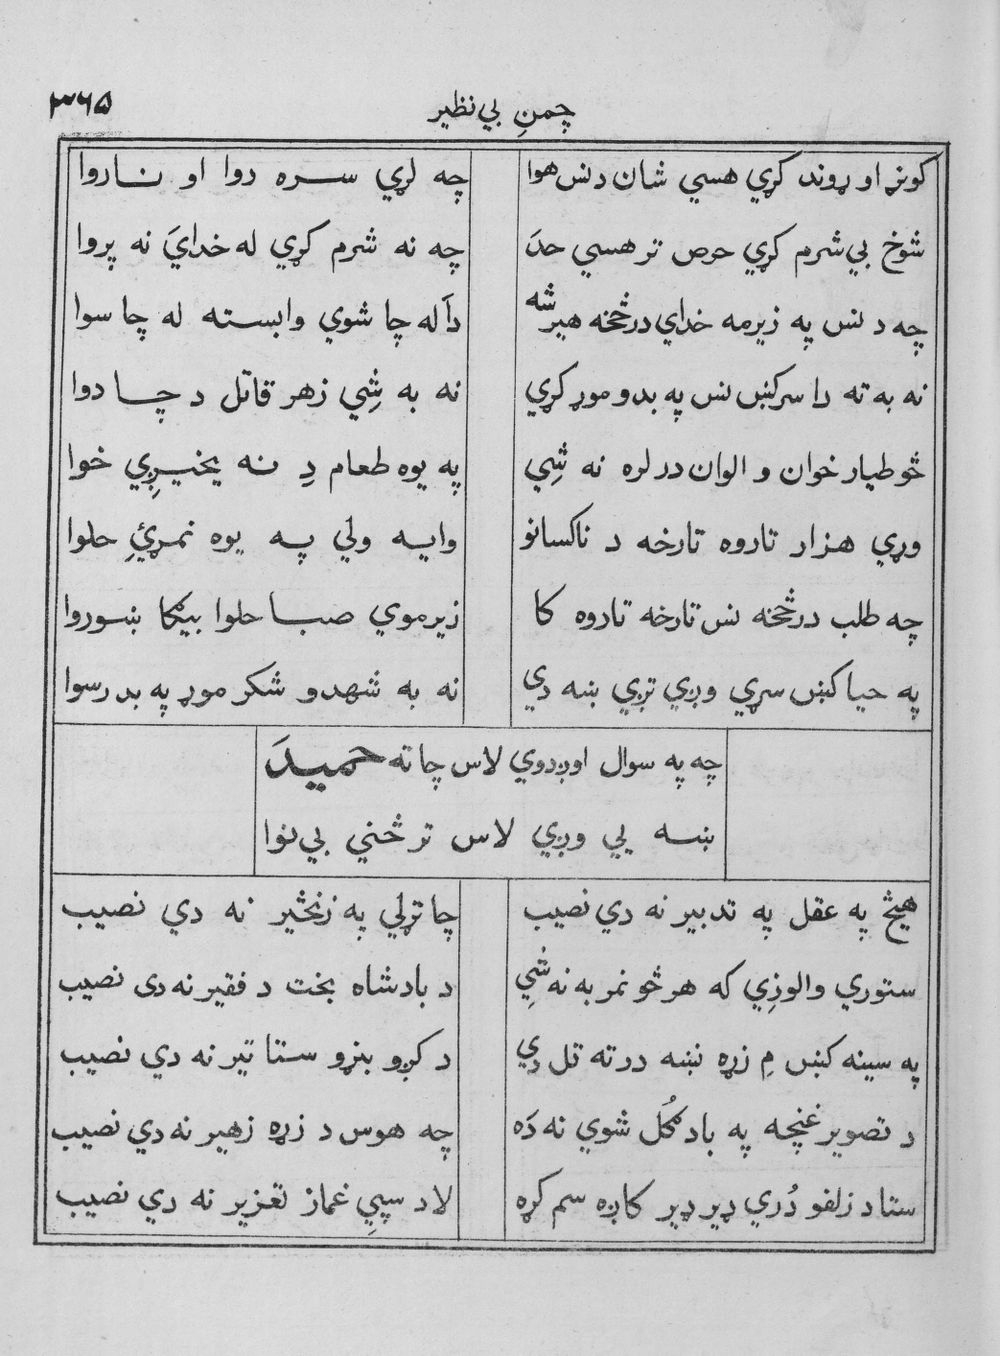 چمنِ بي نظير
۳۶۵
کوڼړ او ړوند کړي هسي شان د نس هوا
چه لړي سره روا او ناروا
شوخ بي شرم کړي حرص تر هسي حدَ
چه نه شرم کړي له خدايَ نه پروا
چه د نس په زيرمه خداي درڅخه هير شه
دا له چا شوي وابسته له چا سوا
نه به ته دا سرکښ نس په بدو موړ کړي
نه به شِي زهر قاتل د چا دوا
څو طيار خوان و الوان در لره نه شِي
په يوه طعام دِ نه يخيږِي خوا
وړي هزار تاروه تارخه د ناکسانو
وايه ولي په يوه نمړئِ حلوا
چه طلب درڅخه نس تارخه تاروه کا
زيرموي صبا حلوا بيګا ښوروا
په حيا کښ سړي وږي تږي ښه دي
نه به شهدو شکر موړ په بد رسوا
چه په سوال اوږدوي لاس چا ته حميدَ
ښه يي وږي لاس تر څني بي نوا
هيڅ په عقل په تدبير نه دي نصيب
چا تړلي په زنځير نه دي نصيب
ستوري والوزِي که هر څو نمر به نه شِي
د بادشاه بخت د فقير نه دی نصيب
په سينه کښ مِ زړه نښه در ته تل دي
د کږو بڼړو ستا تير نه دي نصيب
د تصوير غنچه په باد ګُل شوي نه دَه
چه هوس د زړه زهير نه دي نصيب
ستا د زلفو دُري ډير ډير کاږه سم کړه
لا د سپيِ غماز تعزير نه دي نصيب